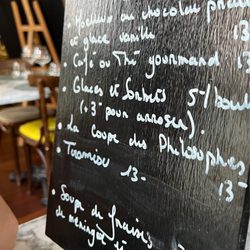 Moelleux au chocolat
et glace vanille 13
• Café ou Thé gourmand 13-
• Glaces et Sorbets 5-/boule
(+3- pour arroser).
• La Coupe des Philosophes
13
• Tiramisu 13-
• Soupe de fraises
de meringue